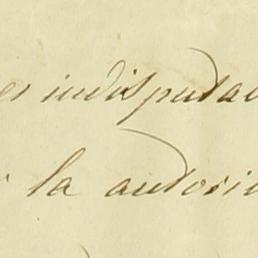 es indisputa
la autori